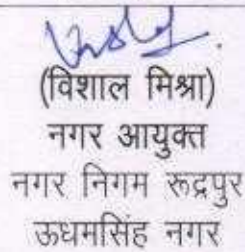 (विशाल मिश्रा)
नगर आयुक्त
नगर निगम रूद्रपुर
ऊधमसिंह नगर